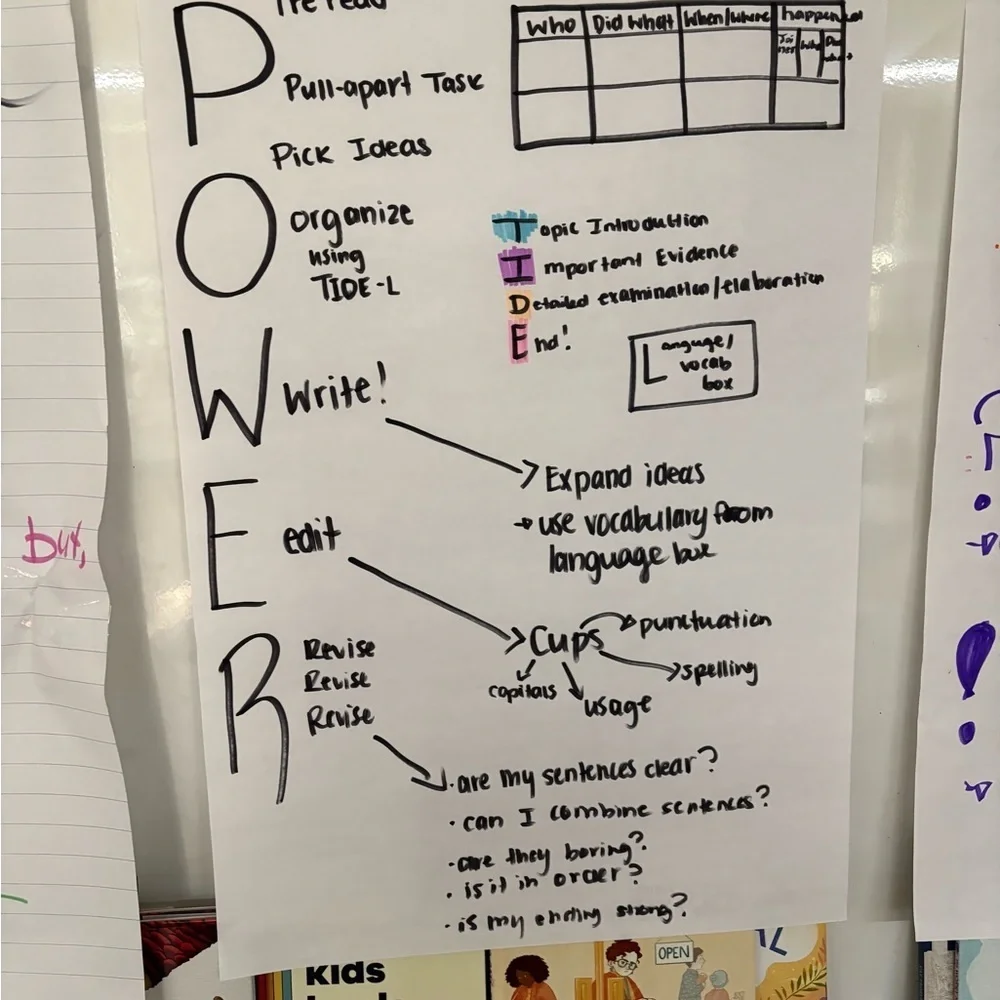 Pre read
P
Pull-apart Task
Pick Ideas
Who Did What When/where happened
Joiner Who Did what
O organize
using
TIDE-L
Topic Introduction
Important Evidence
Detailed examination/elaboration
End!
Language/
vocab
box
W Write!
Expand ideas
→ use vocabulary from
language box
E edit
Cups
punctuation
spelling
capitals
usage
R Revise
Revise
Revise
· are my sentences clear?
· can I combine sentences?
· are they boring?
· is it in order?
· is my ending strong?
but,
kids
OPEN